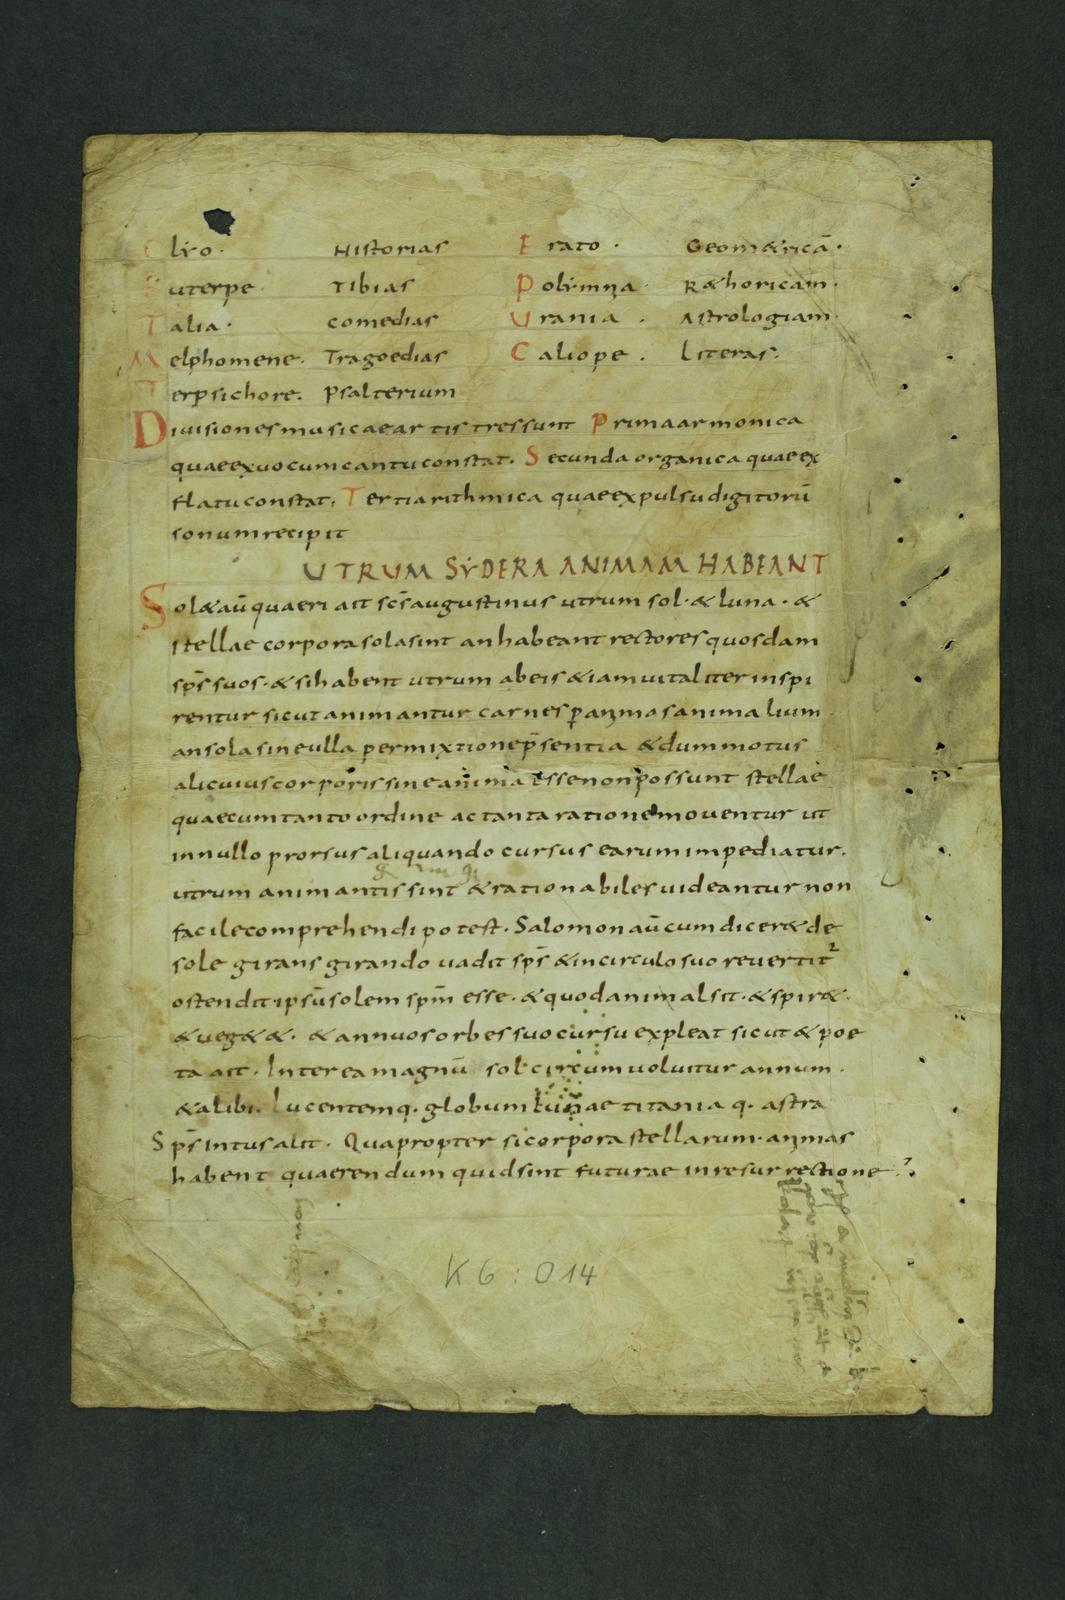 Clyo. Historias Erato. Geom&ricā.
Euterpe. Tibias Polymnia. R&horicam.
Talia. comedias Urania. Astrologiam.
Melphomene. Tragoedias Caliope. Literas.
Terpsichore. Psalterium
Divisiones musicae artis tres sunt Prima armonica
quae ex uocum cantu constat. Secunda organica quae ex
flatu constat. Tertia rithmica quae ex pulsu digitorū
sonum recipit
UTRUM SYDERA ANIMAM HABEANT
Sol& aū quaeri ait scs̄ augustinus utrum sol. & luna. &
stellae corpora sola sint an habeant rectores quosdam
sps̄ suos. & si habent utrum ab eis & iam uitaliter inspi
rentur sicut animantur carnes p animas animalium
an sola sine ulla permixtione p̄sentia & dum motus
alicuius corporis sine anima esse non possunt stellae
quae cum tanto ordine ac tanta ratione mouentur ut
in nullo prorsus aliquando cursus earum impediatur.
utrum animantis sint & rationabiles uideantur non
facile comprehendi potest. Salomon aū cum dicer& de
sole girans girando uadit sps̄ & in circulo suo revertit2
ostendit ipsū solem spm̄ esse. & quod animal sit. & spir&.
& ueg&&. & annuos orbes suo cursu expleat sicut & poe
ta ait. Interea magnū sol circum uoluitur annum.
& alibi. Lucentemq. globum lunae titania q. astra
Sps̄ intus alit. Quapropter si corpora stellarum animas
habent quaerendum quid sint futurae in resurrectione?.
K6:014